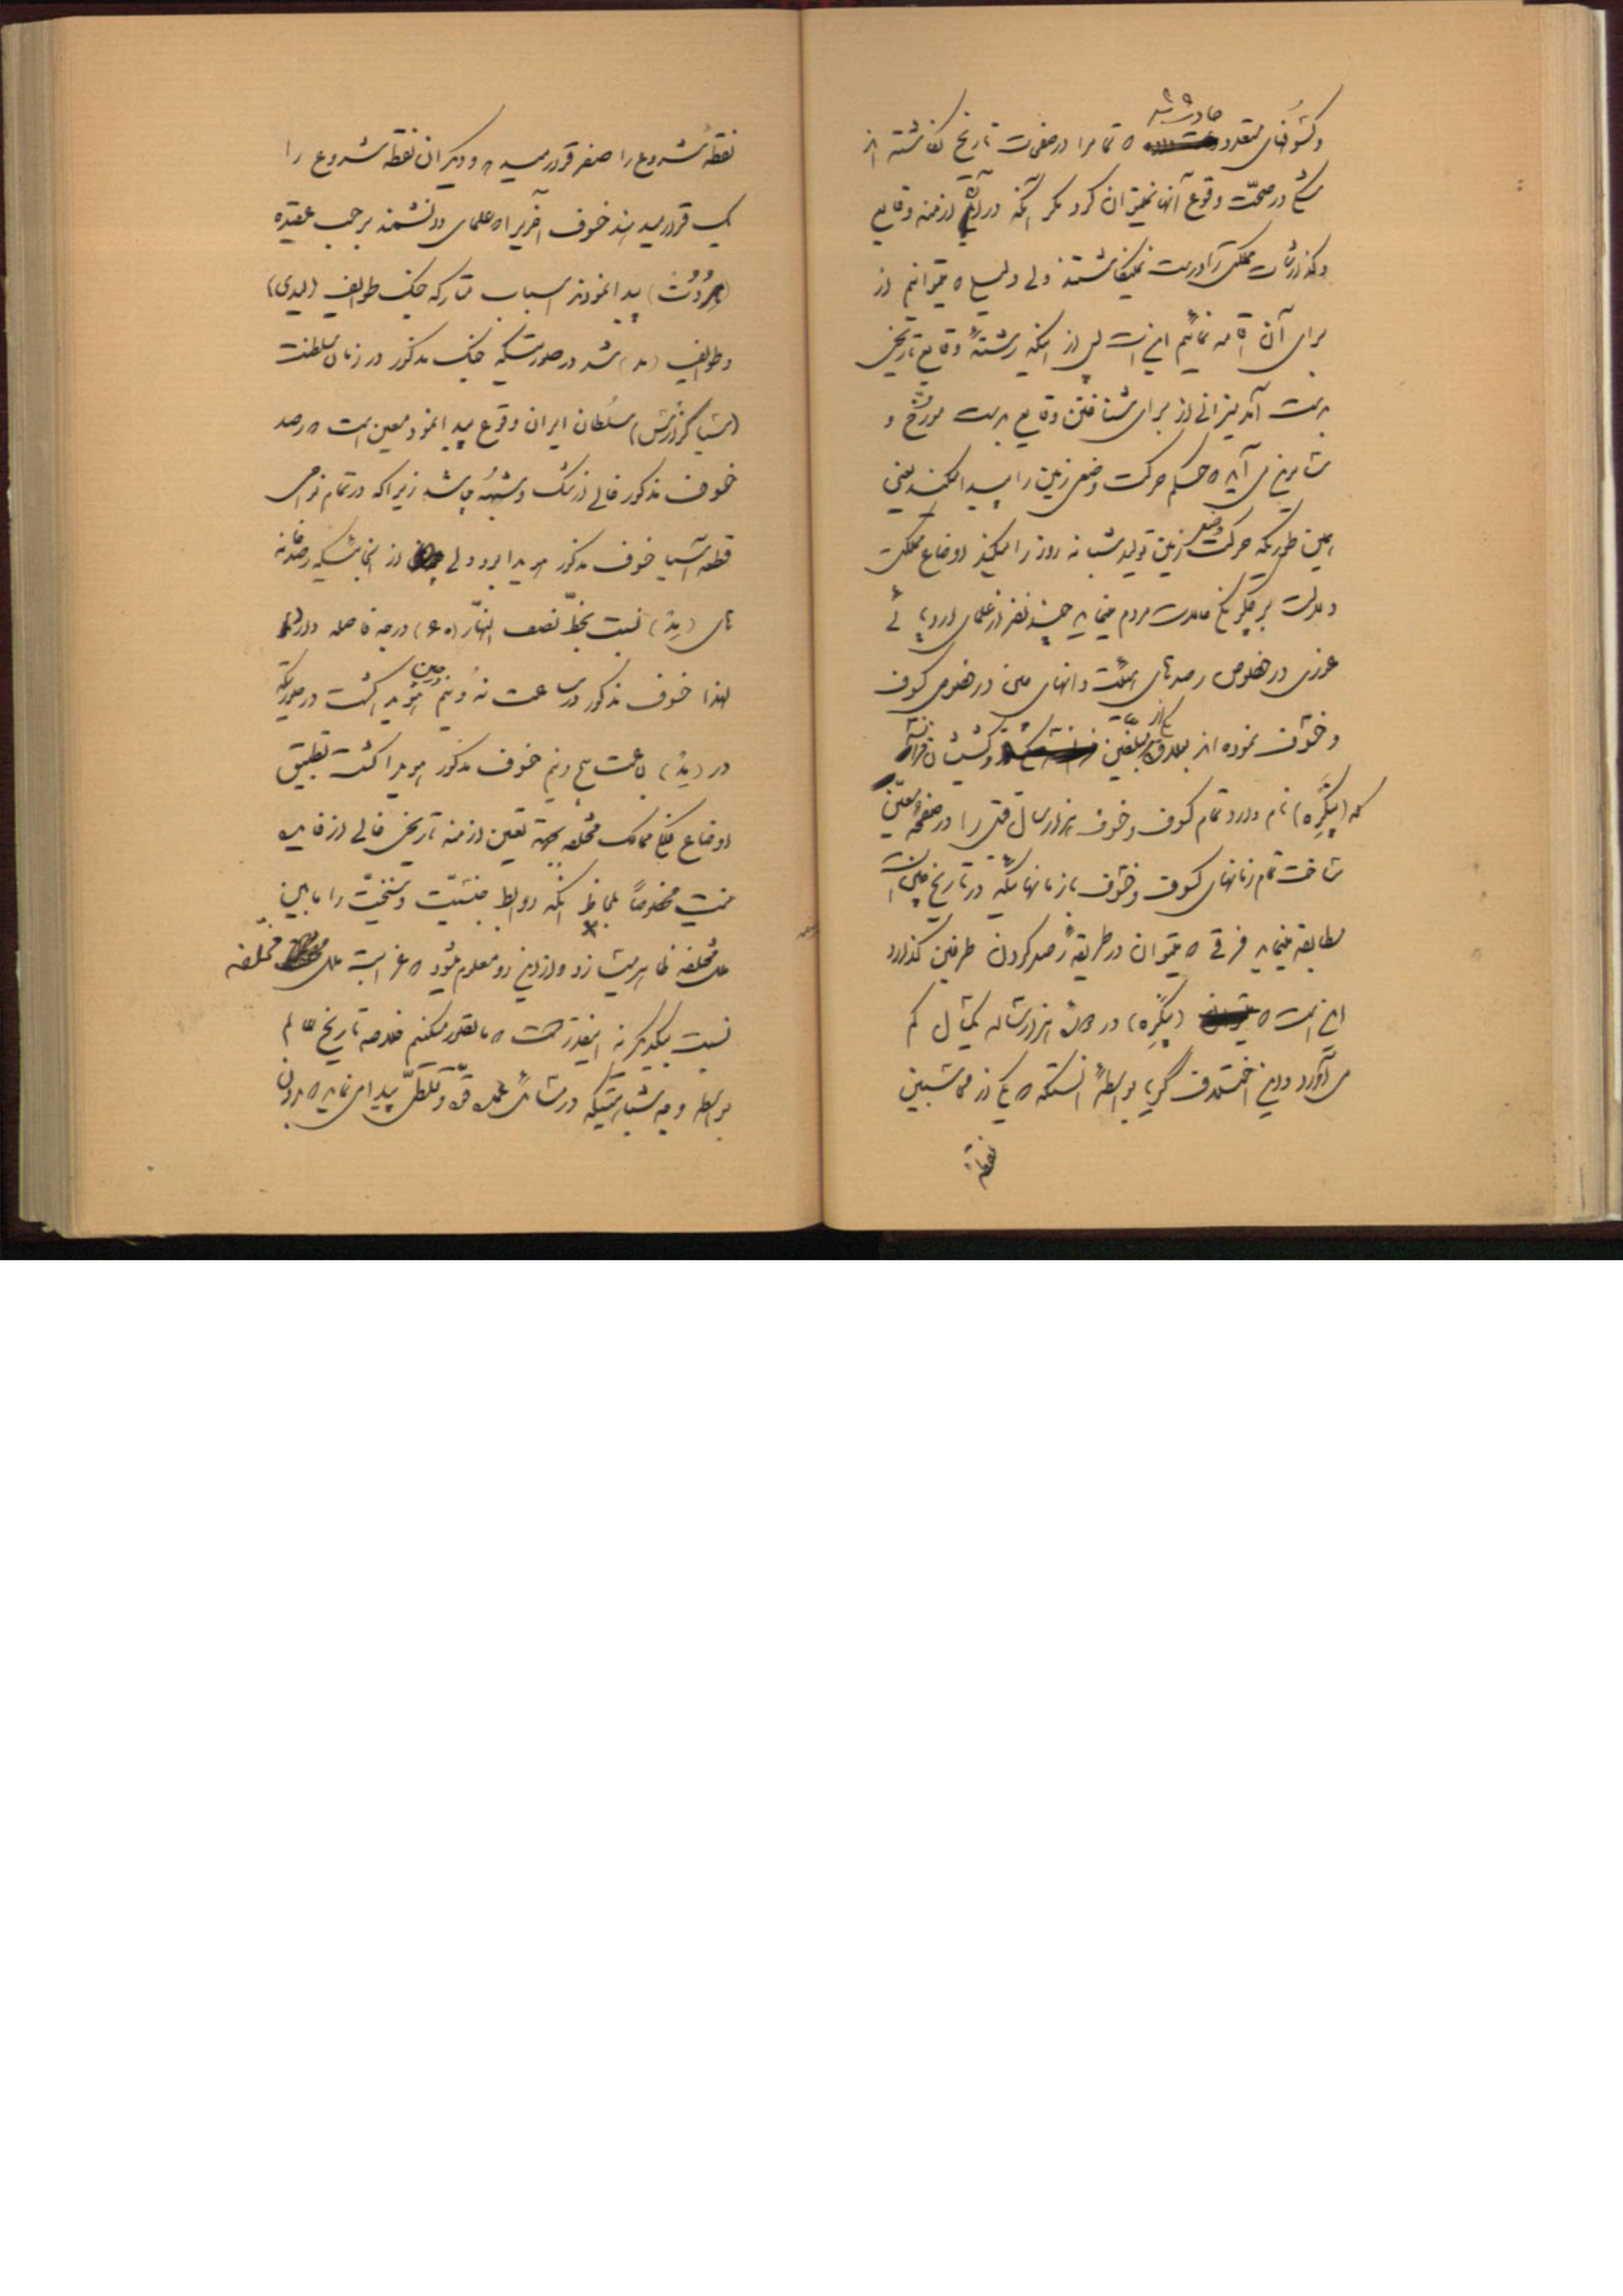 حادث شده
و کسوفهای متعدد که تماما در صفحات تاریخ نگاشته اند
شک در صحّت وقوع آنها نمیتوان کرد مگر آنکه در آن ازمنه وقایع
و گذارشات مملکتی را درست نمینگاشتند ولی دلیلی که میتوانیم از
برای آن اقامه نمائیم این است پس از آنکه رشتهٔ وقایع تاریخی
بدست آمد میزانی از برای شناختن وقایع بدست مورّخ و
می آید که حکم حرکت وضعی زمین را پیدا میکند یعنی
همین طوریکه حرکت وضعی زمین تولید شبانه روز را میکند اوضاع مملکت
و دولت عادات مردم مینماید چند نفر از علمای اروپائی
عزی در خصوص رصدهای هیئت دانهای چین در خصوص کسوف
و خسوف نموده اند مبلّغین و کشیشان فرانسه
که (پنگره) نام دارد تمام کسوف و خسوف هزار سال قبل را در صفحهٔ معیّن
ساخت تمام زمانهای کسوف و خسوف با زمانهائیکه در تاریخ چین است
مطابقه مینماید فرقی که میتوان در طریقهٔ رصد کردن طرفین گذارد
این است که (پنگره) در هزار ساله یکسال کم
می آورد و این اختلاف گویا بواسطهٔ آنستکه یکی از محاسبین
نقطهٔ
نقطهٔ شروع را صفر قرار میدهد و دیگران نقطه شروع را
یک قرار میدهند خسوف آخری را که علمای دانشمند برحسب عقیده
(هرودُت) پیدا نمودند اسباب متارکه جنگ طوایف (لیدی)
و طوایف (مد) شد در صورتیکه جنگ مذکور در زمان سلطنت
(سیاگزارس) سلطان ایران وقوع پیدا نمود معین است که رصد
خسوف مذکور خالی از شک و شبهه میباشد زیرا که در تمام نواحی
قطعه آسیا خسوف مذکور هویدا بود ولی از آنجائیکه رصدخانه
های (پد) نسبت بخطّ نصف النهار (۶۰) درجه فاصله دارد
لهذا خسوف مذکور در ساعت نه و نیم در چین هویدا گشت در صورتیکه
در (پد) ساعت پنج و نیم خسوف مذکور هویدا گشت تطبیق
اوضاع فلکی ممالک مختلفه بجهة تعیین ازمنه تاریخی خالی از فایده
نیست مخصوصاً بلحاظ آنکه روابط جنسیّت و سنخیّت را مابین
ملل مختلفه ظاهر میسازد و از این رو معلوم میشود که غرابت ملل مختلفه
نسبت بیکدیگر نه اینقدر است که ما تصور میکنیم خلاصه تاریخ عالم
بواسطه وجه شباهتیکه در منشاء قوّه و تکمّل پیدا می نماید که بدون